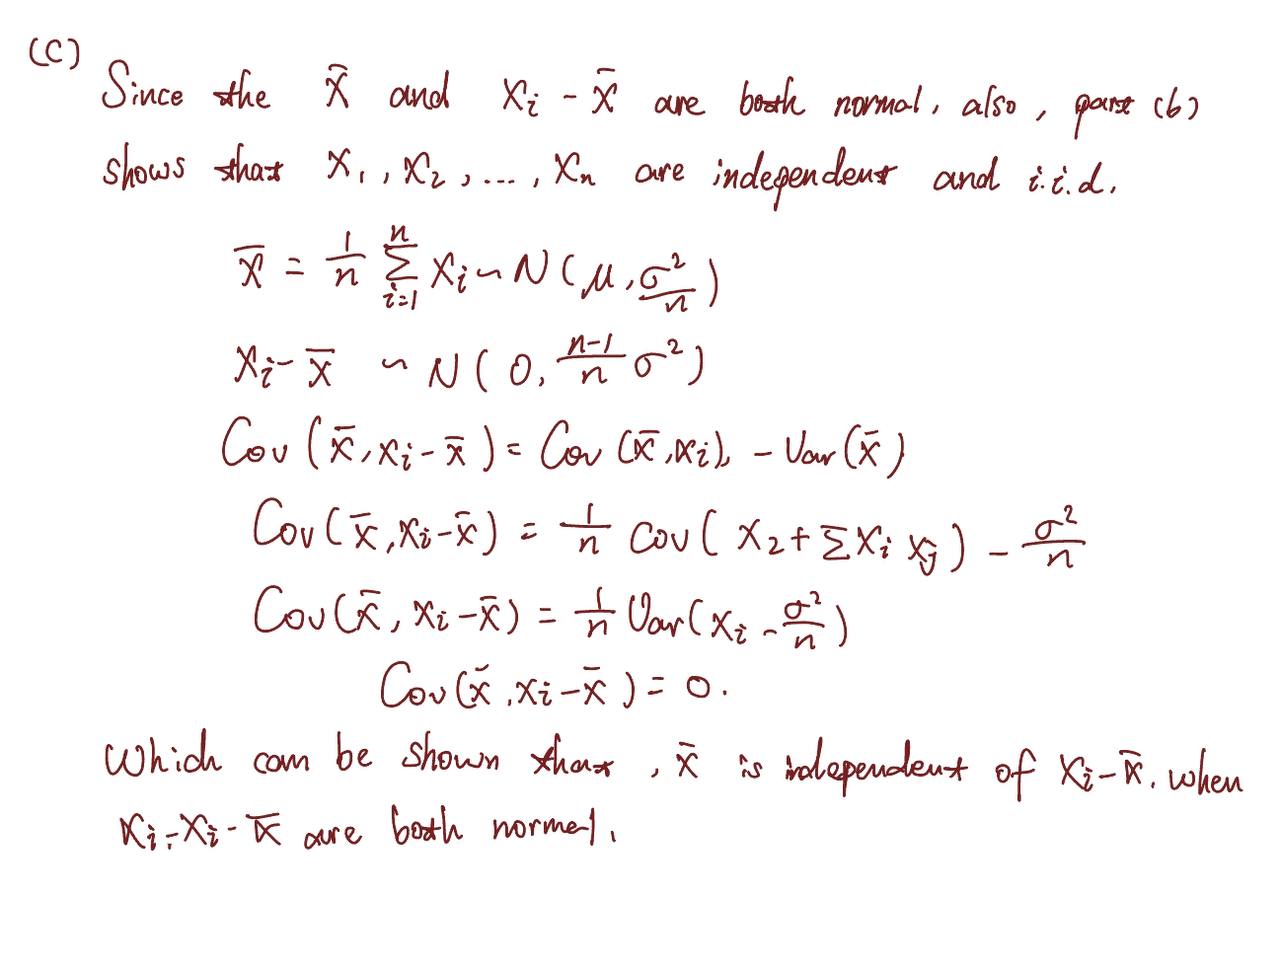 (C)
Since the X̄ and Xi - X̄ are both normal, also, part (b)
shows that X1, X2, ..., Xn are independent and i.i.d.
X̄ = 1/n ∑_{i=1}^{n} Xi ~ N(μ, σ²/n)
Xi - X̄ ~ N(0, n-1/n σ²)
Cov(X̄, Xi - X̄) = Cov(X̄, Xi), - Var(X̄)
Cov(X̄, Xi - X̄) = 1/n Cov(X2 + ∑Xi Xj) - σ²/n
Cov(X̄, Xi - X̄) = 1/n Var(Xi - σ²/n)
Cov(X̄, Xi - X̄) = 0.
Which can be shown that, X̄ is independent of Xi - X̄. when
Xi, Xi - X̄ are both normal.